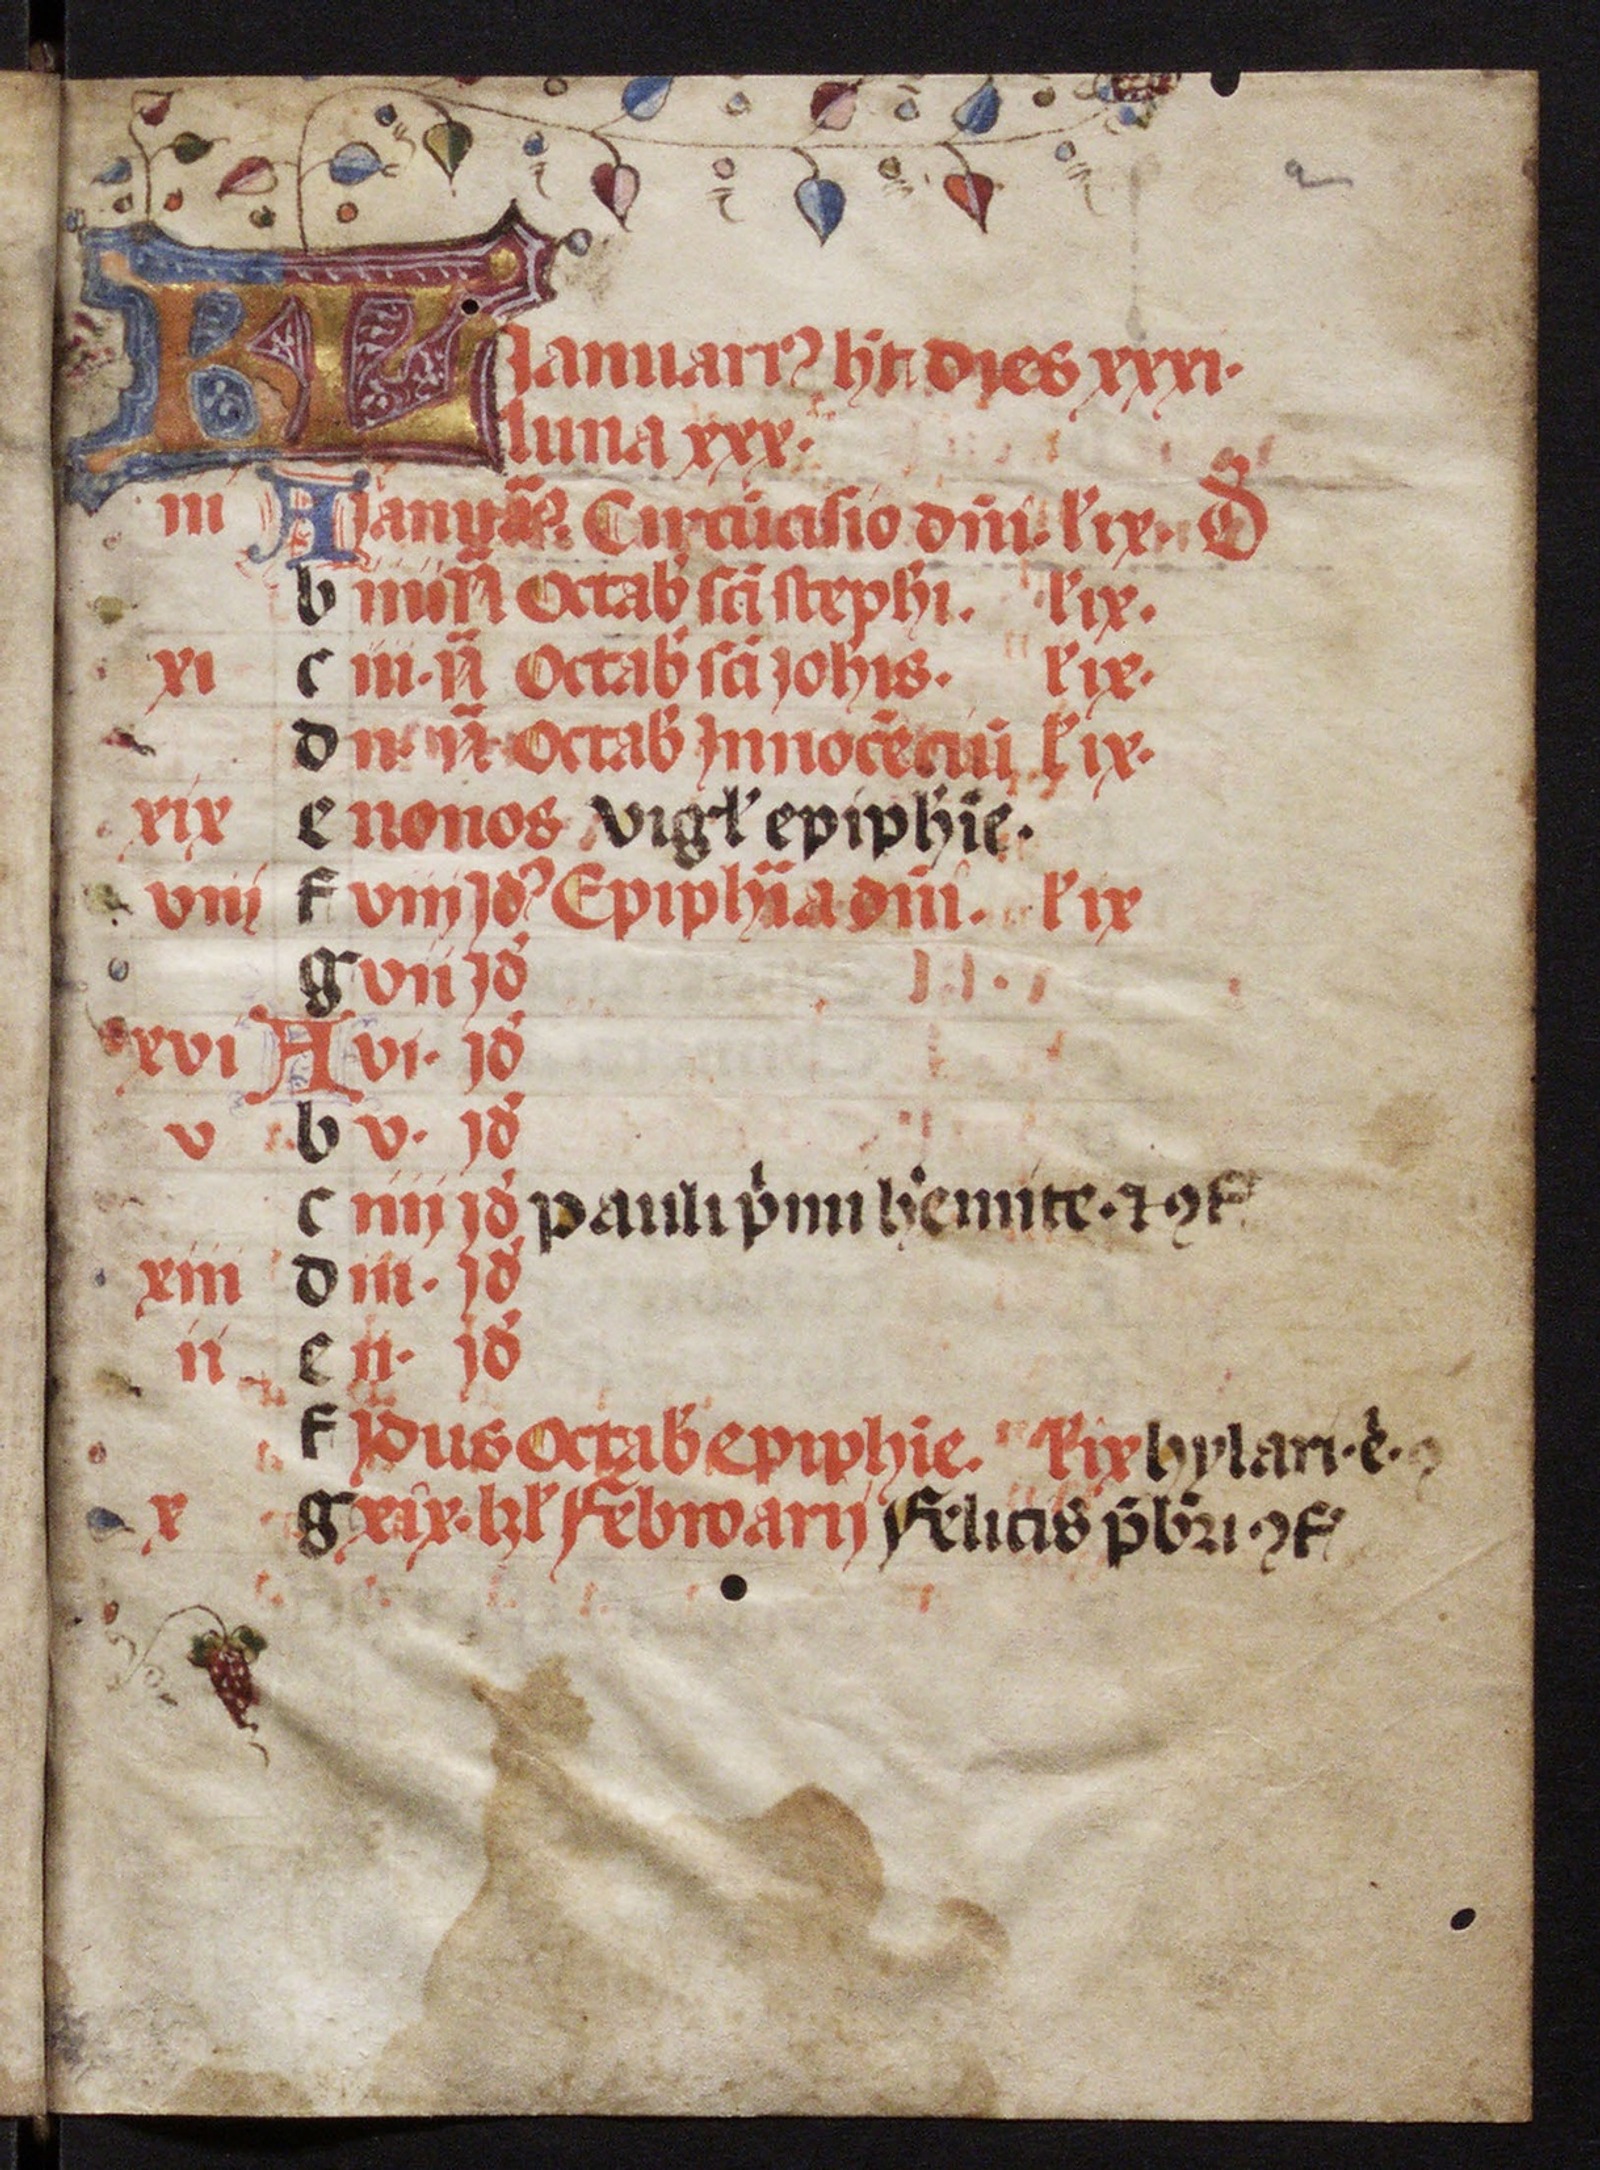 KL Januarꝰ ht dies xxxi·
luna xxx·
iii A Januarꝰ. Circūcisio dn̄i· l' ix· D
b iiii n̄ Octab' sc̄i steph̄i. l' ix·
xi c iii· n̄ Octab' sc̄i Joh̄is· l' ix·
d ii· n̄ Octab' Innocēciū l' ix·
xix e nonos vigl' epiph̄ie·
viii f viii Jdꝰ Epiph̄ia dn̄i. l' ix
g vii Jd'
xvi A vi· Jd'
v b v· Jd'
c iiii Jd' pauli p̄mi h̄emite· ⁊ ꝯf
xiii d iii· Jd'
ii e ii· Jd'
f Jdus Octab' epiph̄ie. l' ix hylari· e'· ꝯ
x g xix· kl' Februarij Felicis p̄br̄i ꝯf